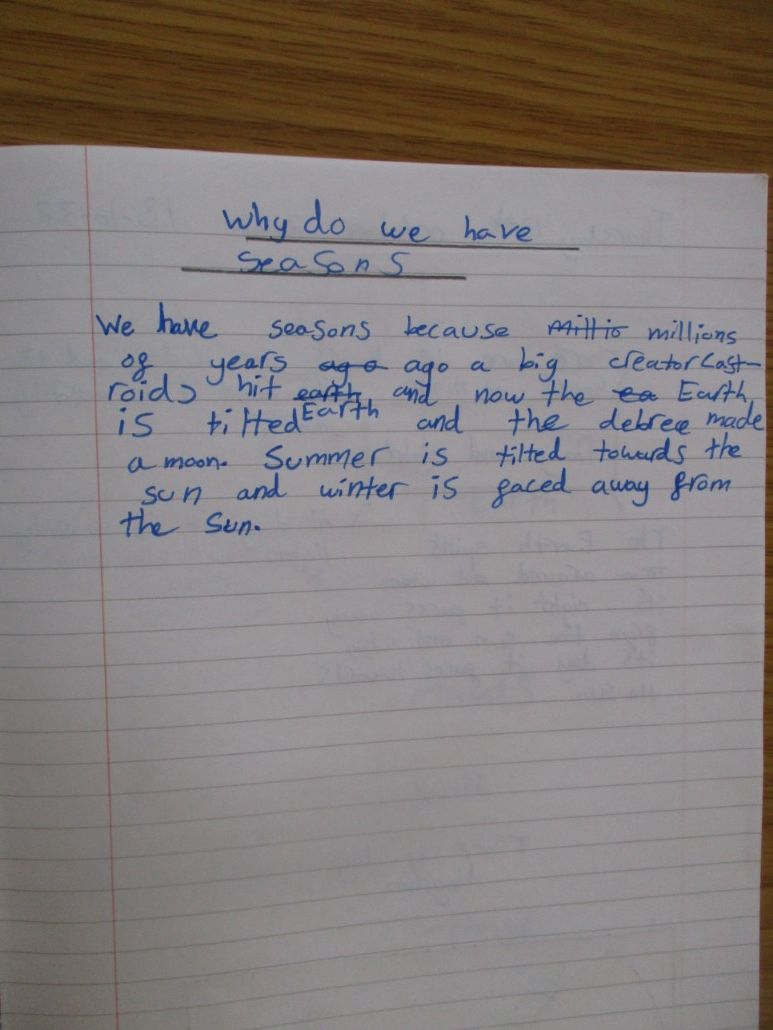 Why do we have
seasons
We have seasons because millio millions
of years ago ago a big creator (ast-
roid) hit earth Earth and now the ea Earth
is tilted and the debree made
a moon. Summer is tilted towards the
sun and winter is faced away from
the Sun.